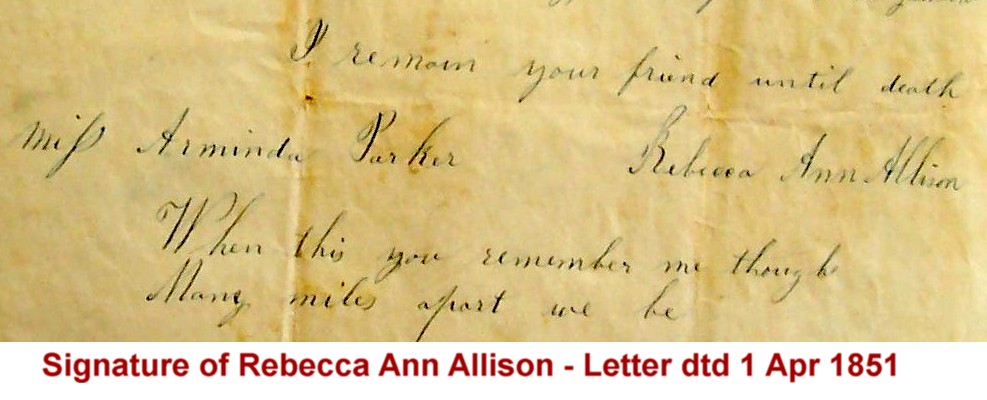 I remain your friend until death
Miss Arminda Parker Rebecca Ann Allison
When this you remember me though
Many miles apart we be
Signature of Rebecca Ann Allison - Letter dtd 1 Apr 1851